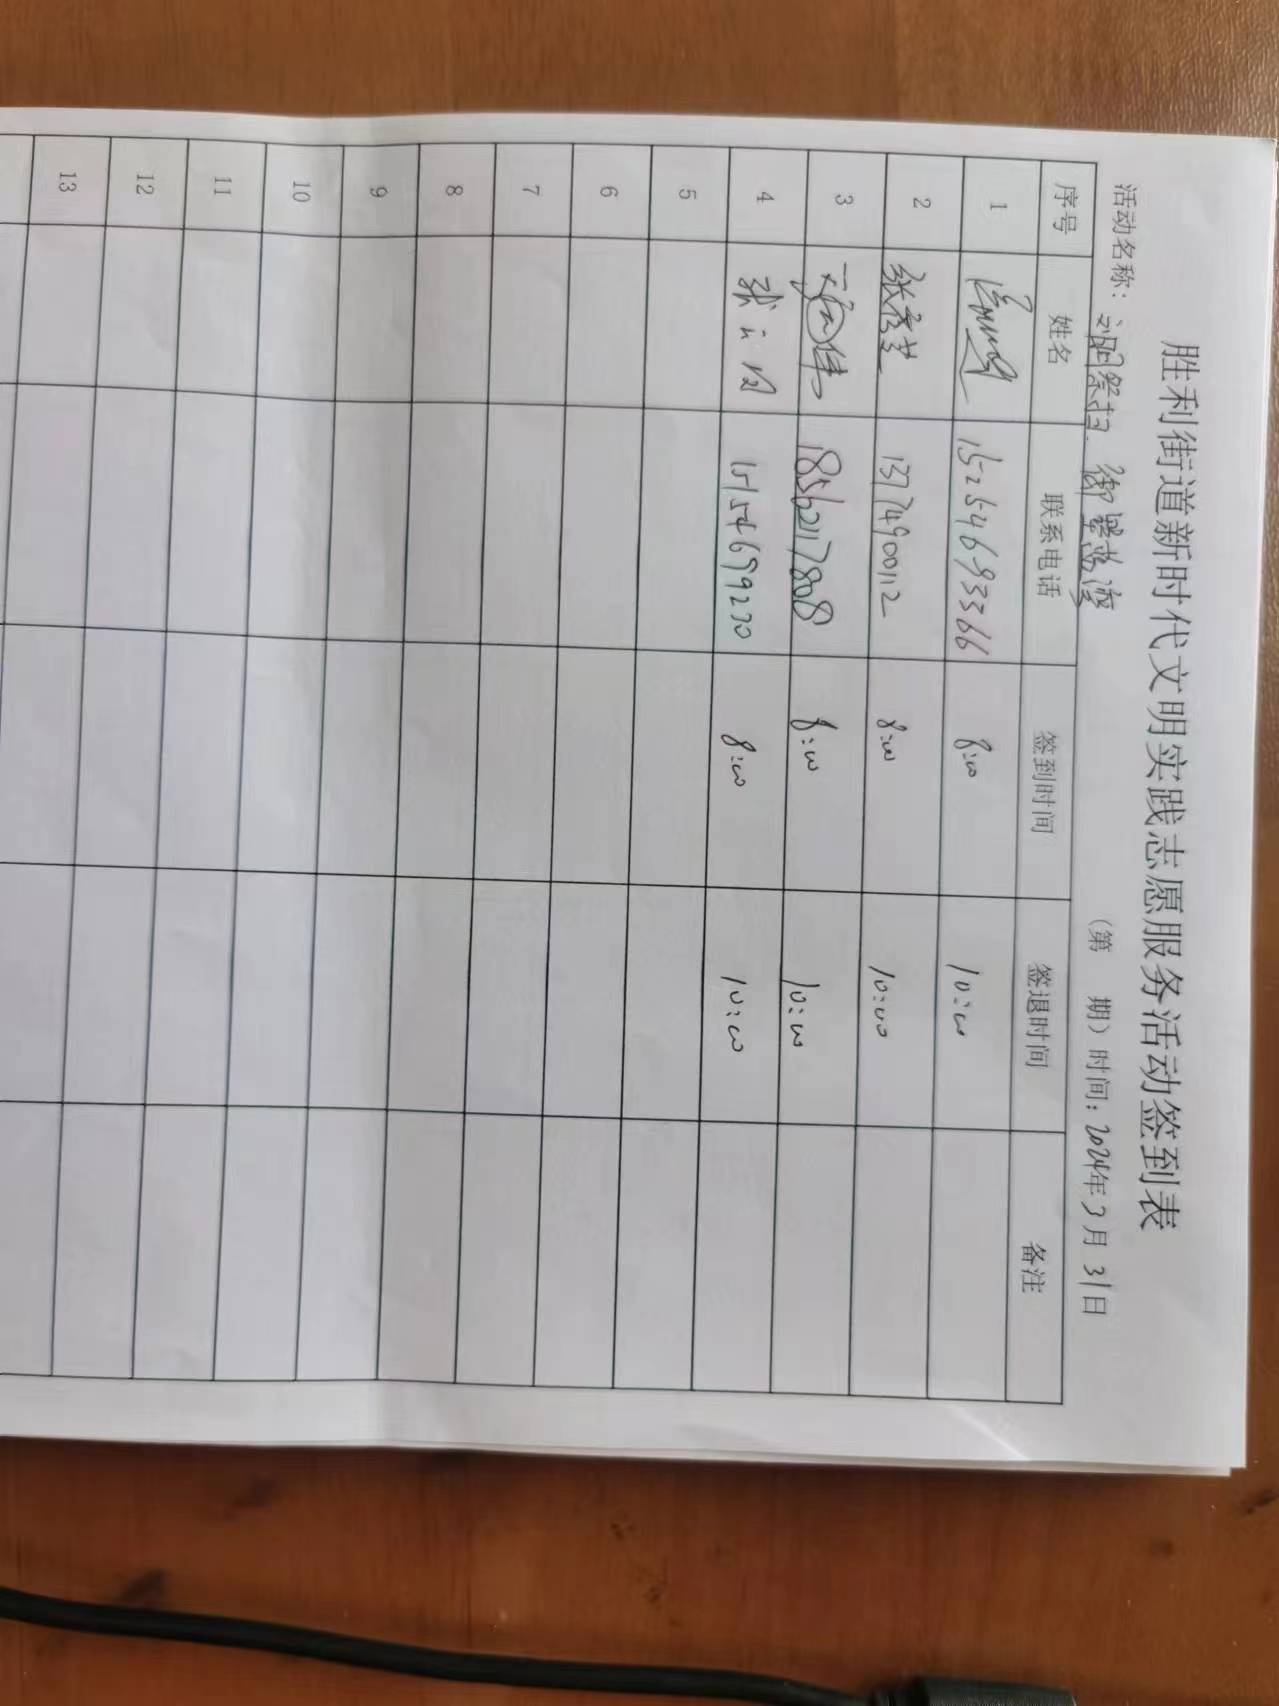 胜利街道新时代文明实践志愿服务活动签到表
活动名称：祭扫 （第 期）时间：2024年3月31日
序号 姓名 联系电话 签到时间 签退时间 备注
1 15254693366 8:00 10:00
2 张秀兰 13774900112 8:00 10:00
3 18562117808 8:00 10:00
4 15154699230 8:00 10:00
5
6
7
8
9
10
11
12
13